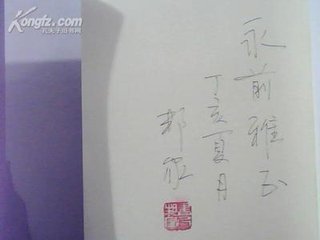 Kongfz.com
孔夫子旧书网
永前雅正
丁亥夏月
邦家